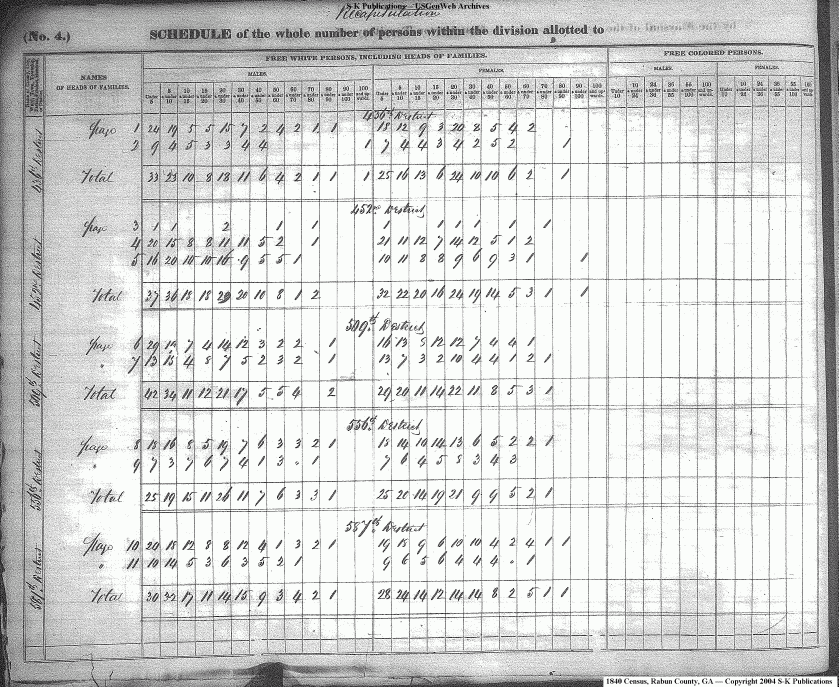 S-K Publications – USGenWeb Archives
Recapitulation
(No. 4.) SCHEDULE of the whole number of persons within the division allotted to
FREE WHITE PERSONS, INCLUDING HEADS OF FAMILIES. FREE COLORED PERSONS.
NAMES OF HEADS OF FAMILIES. MALES. FEMALES. MALES. FEMALES.
436th District
Page 1 24 19 5 5 15 7 2 4 2 1 1 18 12 9 3 20 8 5 4 2
2 9 4 5 3 3 4 4 1 7 4 4 3 4 2 5 2 1
Total 33 23 10 8 18 11 6 4 2 1 1 1 25 16 13 6 24 10 10 6 2 1
452nd District
Page 3 1 1 2 1 1 1 1 1 1 1 1
4 20 15 8 8 11 11 5 2 1 21 11 12 7 14 12 5 1 2
5 16 20 10 10 16 9 5 5 1 10 11 8 8 9 6 9 3 1 1
Total 37 36 18 18 29 20 10 8 1 2 32 22 20 16 24 19 14 5 3 1 1
509th District
Page 6 29 19 7 4 14 12 3 2 2 1 16 13 8 12 12 7 4 4 1
" 7 13 15 4 8 7 5 2 3 2 1 13 7 3 2 10 4 4 1 2 1
Total 42 34 11 12 21 17 5 5 4 2 29 20 11 14 22 11 8 5 3 1
556th District
Page 8 18 16 8 5 19 7 6 3 3 2 1 18 14 10 14 13 6 5 2 2 1
" 9 7 3 7 6 7 4 1 3 . 1 7 6 4 5 8 3 4 3
Total 25 19 15 11 26 11 7 6 3 3 1 25 20 14 19 21 9 9 5 2 1
587th District
Page 10 20 18 12 8 8 12 4 1 3 2 1 19 18 9 6 10 10 4 2 4 1 1
" 11 10 14 5 3 6 3 5 2 1 9 6 5 6 4 4 4 . 1
Total 30 32 17 11 14 15 9 3 4 2 1 28 24 14 12 14 14 8 2 5 1 1
436th District
452nd District
509th District
556th District
587th District
1840 Census, Rabun County, GA — Copyright 2004 S-K Publications